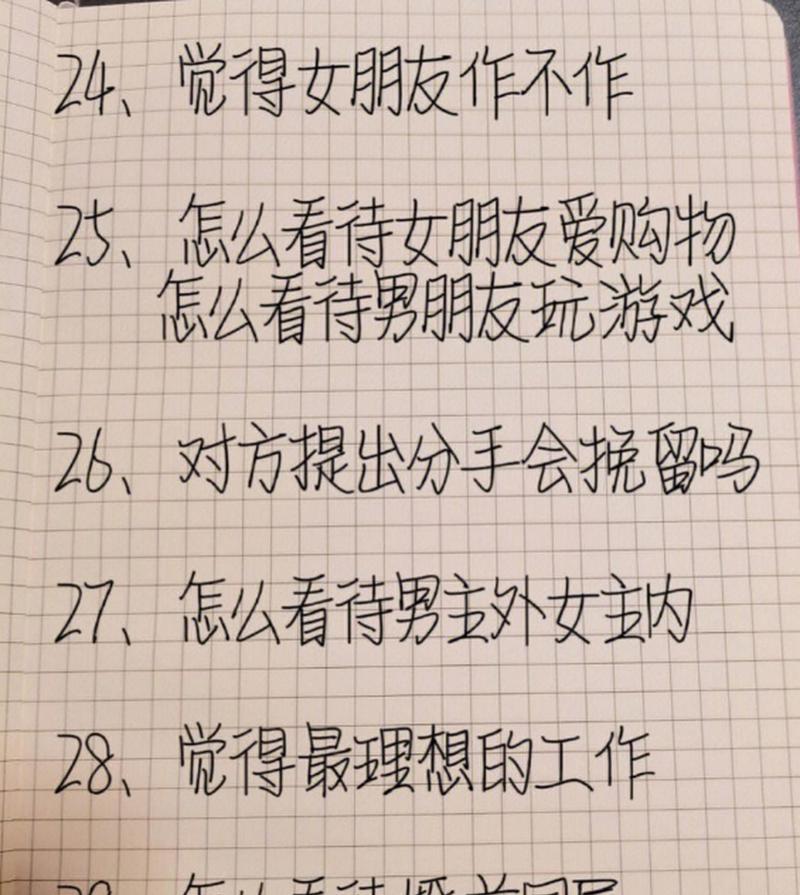 24、觉得女朋友作不作
25、怎么看待女朋友爱购物
怎么看待男朋友玩游戏
26、对方提出分手会挽留吗
27、怎么看待男主外女主内
28、觉得最理想的工作